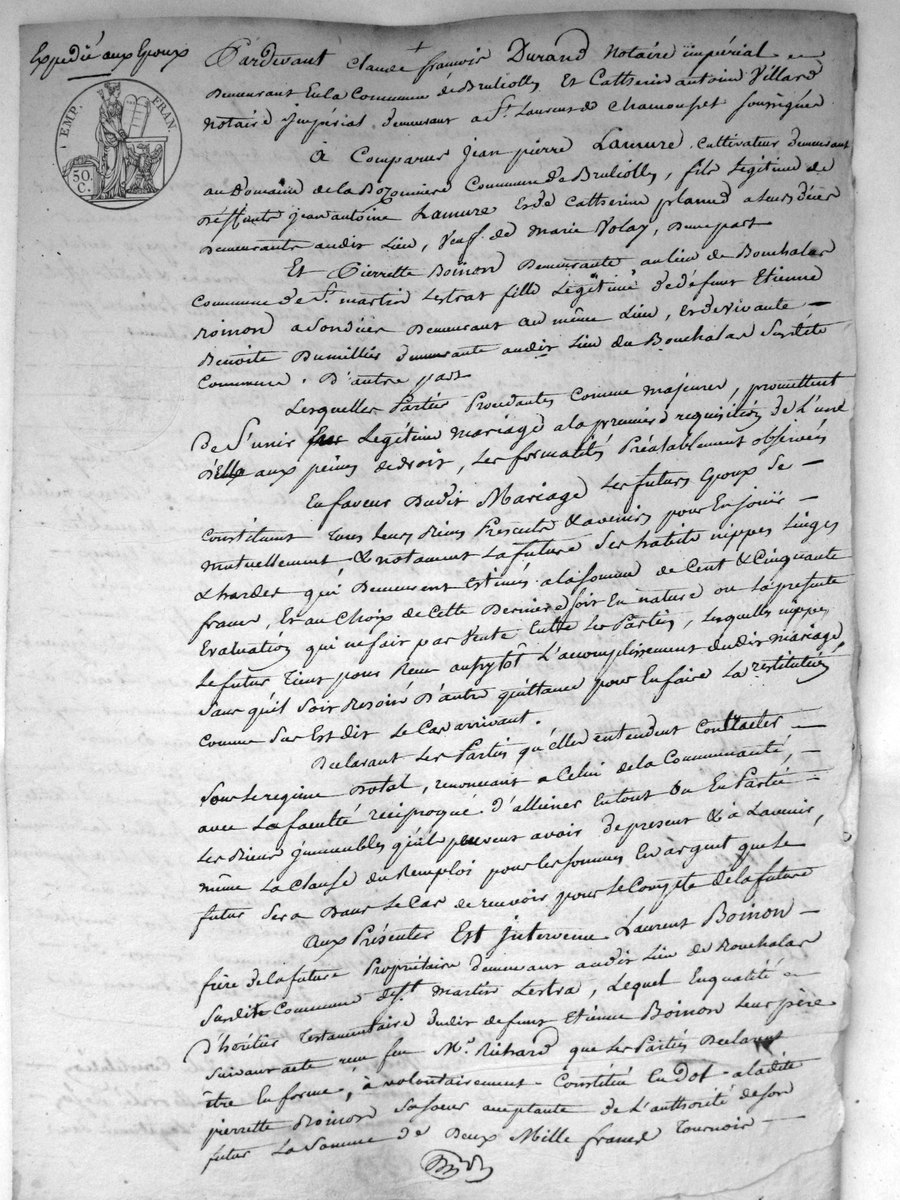 Expedié aux Epoux
EMP. FRAN.
50 C.
Pardevant Claude françois Durand Notaire impérial
Demeurant En la Commune de Brulliolle, Et Catherin antoine Villard
Notaire impérial demeurant a St. Laurent de Chamousset soussignés
à Comparu Jean pierre Lamure cultivateur demeurant
au Domaine de la Commune de Brulliolle, fils Légitime de
Deffunts jean antoine Lamure Et de Catherine planud a leurs décès
Demeurants audit Lieu, Veuf de Marie Volay, D'une part
Et Pierrette Boinon Demeurante au lieu de Bouchalas
Commune de St. martin Lestrat fille Légitime de défunt Etienne
Boinon a son décès Demeurant au même Lieu, Et de vivante
Benoite Dumillier demeurante audit Lieu du Bouchalas Susdite
Commune. D'autre part
Lesquelles Parties Procedantes Comme majeures, promettent
De S'unir En Legitime mariage a la premiere requisition de L'une
D'Elle aux peines de droit, Les formalités Préalablement observées
En faveur Dudit Mariage Les futurs Epoux Se
Constituent Tous Leurs Biens Presents & avenir pour En jouir
mutuellement, & notament La future Ses habits nippes Linges
& hardes qui Demeurent Estimés a la somme de Cent & Cinquante
francs, Et au Choix de Cette Derniere soit En nature ou La presente
Evaluation qui ne fait pas Vente Entre Les Parties, Lesquelles nippes
Le futur Tient pour Reçu aussytôt L'accomplissement dudit mariage,
Sans qu'il Soit Besoin D'autre quittance pour En faire La restitution
Comme Sus Est dit Le Cas arrivant.
Declarant Les Parties qu'elles entendent Contracter
Sous Le regime Dotal, renoncant a Celui de la Communauté,
avec La faculté réciproque d'alliener En tout Ou En Partie
Les Biens immeubles qu'ils peuvent avoir De present & à L'avenir,
même La Clause du Remploi pour les sommes En argent que Le
futur Sera Dans Le Cas de recevoir pour Le Compte de la future
Aux Présentes Est Intervenu Laurent Boinon
frère de la future Propriétaire demeurant audit Lieu de Bouchalas
Susdite Commune de St. Martin Lestra, Lequel En qualité
D'héritier Testamentaire dudit defunt Etienne Boinon Leur père
Suivant acte reçu feu Me. Richard que Les Parties Declarent
être En forme, à volontairement Constitué En Dot a ladite
pierrette Boinon Sa soeur acceptante de L'authorité de son
futur La Somme de Deux Mille francs Tournois